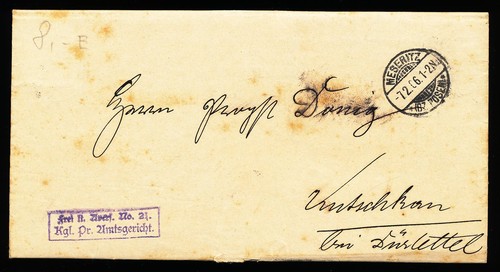 8,- E
MESERITZ
-7.2.06.1-2N.
(BZ. POSEN)
Herrn Propst Dönig
Kutschkau
bei Dürlettel
Frei lt. Avers. No. 21.
Kgl. Pr. Amtsgericht.